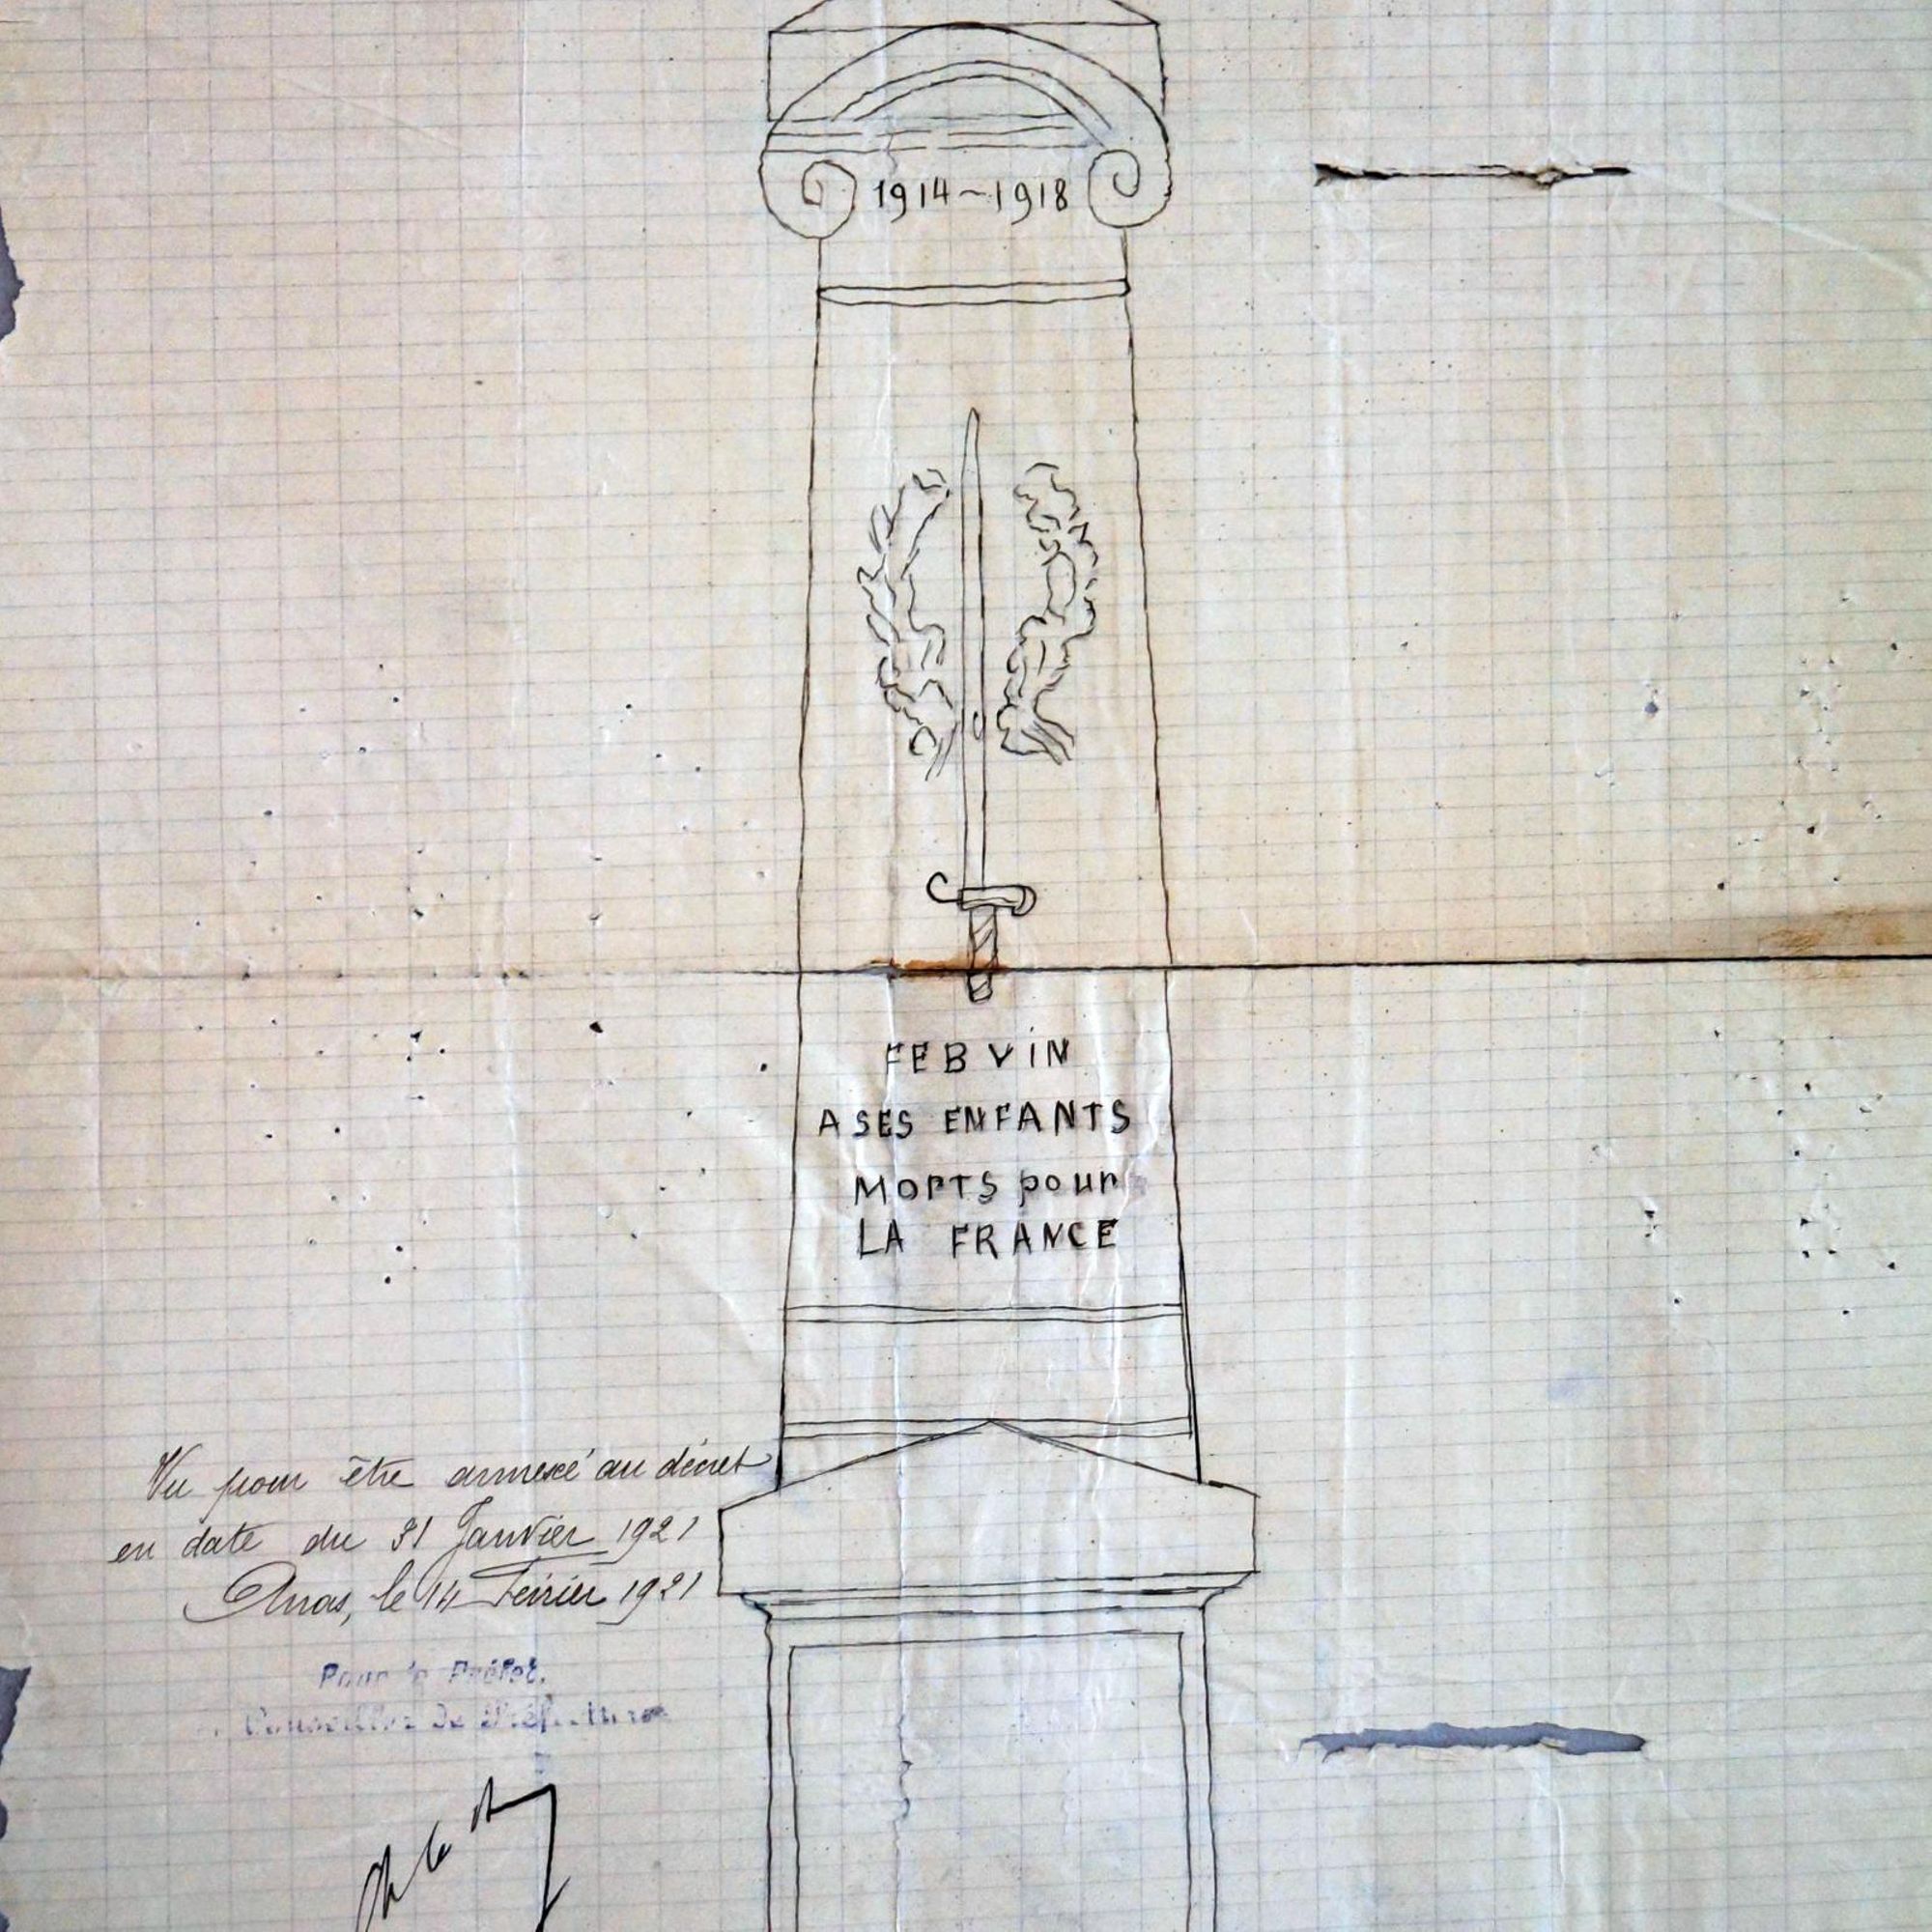 1914~1918
FEBVIN
A SES ENFANTS
MORTS pour
LA FRANCE
Vu pour être annexé au décret
en date du 31 Janvier 1921
Arras, le 14 Février 1921
Pour le Préfet,
Conseiller de Préfecture